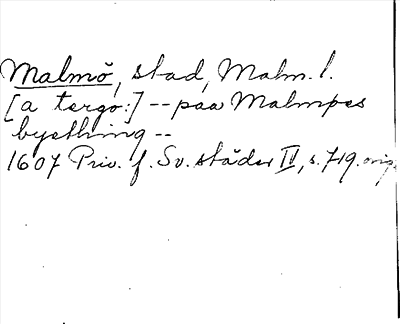 Malmö, stad, Malm. l.
[a tergo:] -- paa Malmpes
bysthing --
1607 Priv. f. Sv. städer II, s. 719. orig.